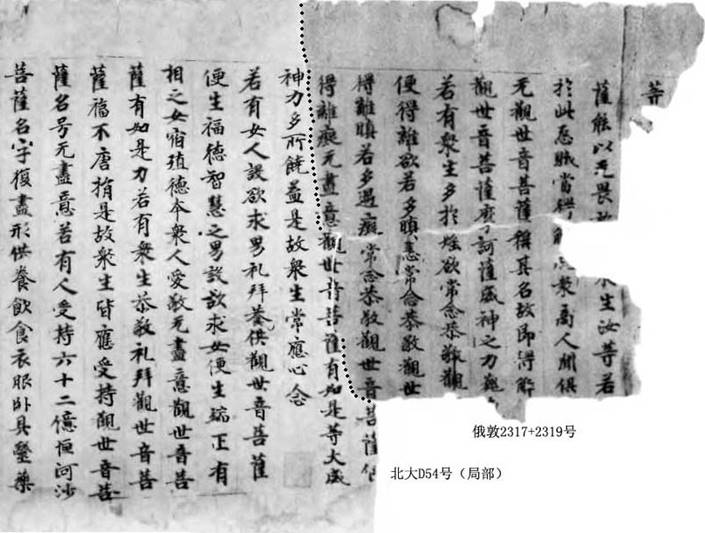 菩
薩能以无畏生汝等若
於此惡賊當得衆商人聞俱
无觀世音菩薩稱其名故即得解
觀世音菩薩摩訶薩威神之力巍
若有衆生多於婬欲常念恭敬觀
便得離欲若多瞋恚常念恭敬觀世
得離瞋若多愚癡常念恭敬觀世音菩薩便
得離癡无盡意觀世音菩薩有如是等大威
神力多所饒益是故衆生常應心念
若有女人設欲求男礼拜養供觀世音菩薩
便生福德智慧之男設欲求女便生端正有
相之女宿殖德本衆人愛敬无盡意觀世音菩
薩有如是力若有衆生恭敬礼拜觀世音菩
薩福不唐捐是故衆生皆應受持觀世音菩
薩名号无盡意若有人受持六十二億恒河沙
菩薩名字復盡形供養飲食衣服卧具醫藥
俄敦2317+2319号
北大D54号（局部）